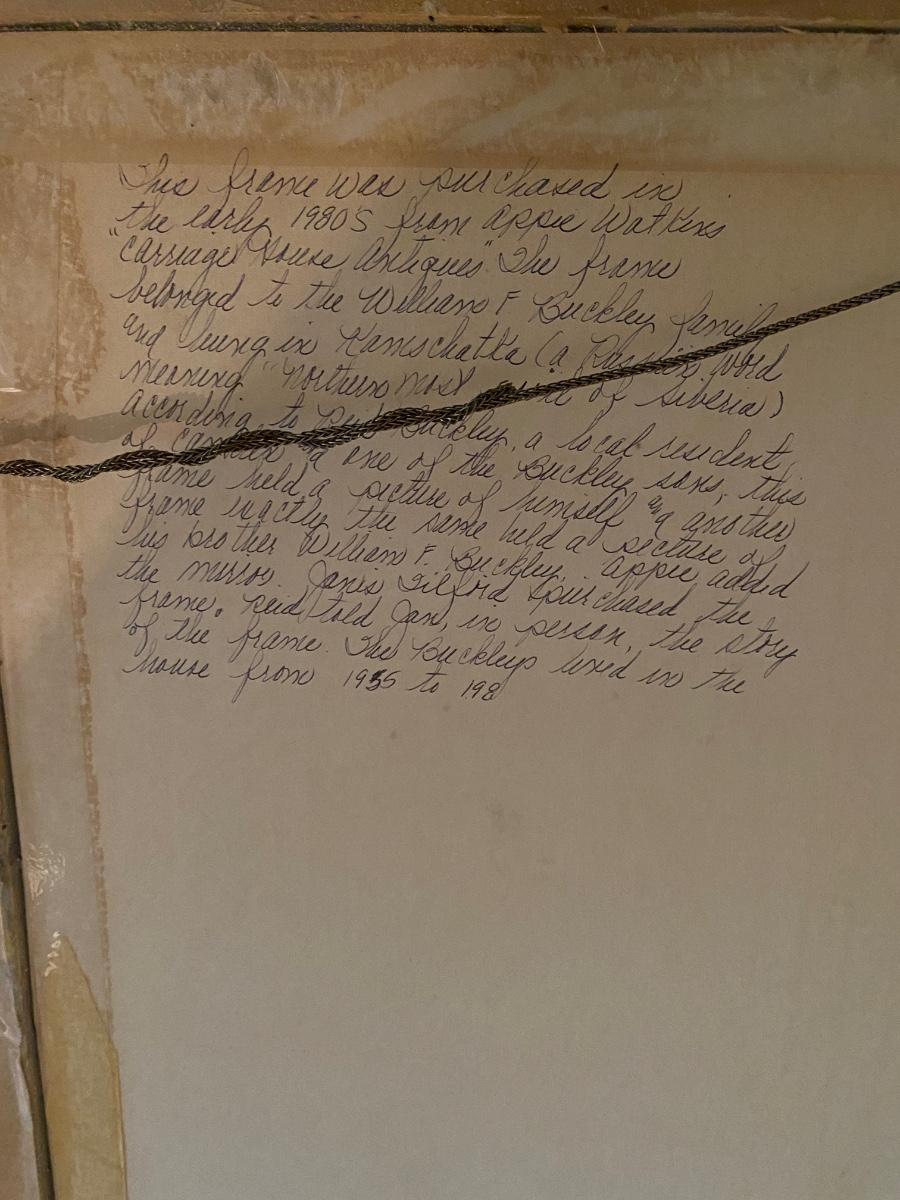 This frame was purchased in
the early 1980'S from Appie Watkins
"Carriage House Antiques". The frame
belonged to the William F Buckley family
and hung in Kamschatka (a Russian word
meaning "northern most of Siberia)
According to Reid Buckley, a local resident,
of Camden & one of the Buckley sons, this
frame held a picture of himself and another
frame exactly the same held a picture of
his brother William F. Buckley. Appie added
the mirror. Janis Tilford purchased the
frame. Reid told Jan, in person, the story
of the frame. The Buckleys lived in the
house from 1935 to 198